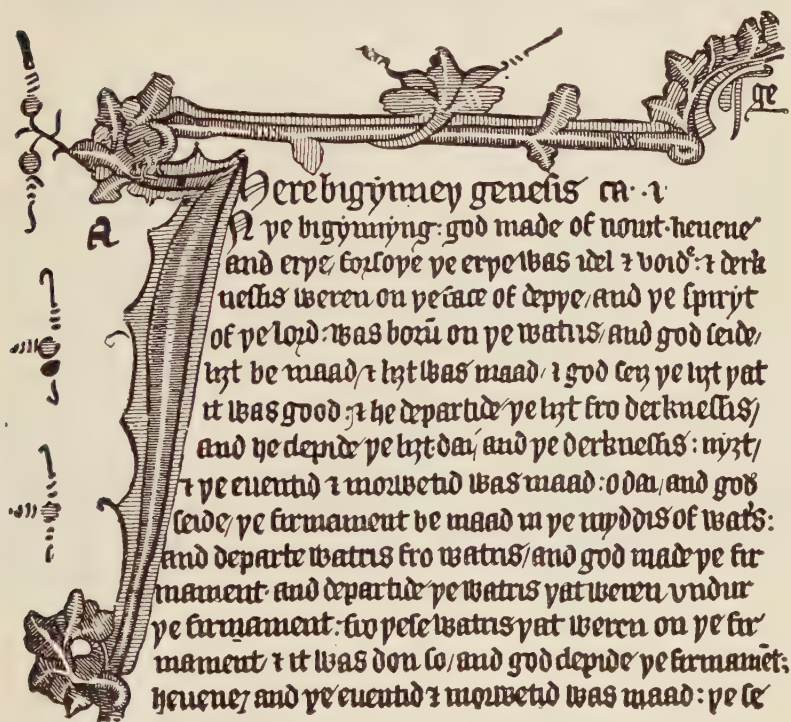 ge
Here bigynney genesis ca. .i
A
IN ye bigynnyng: god made of nowt. heuene
and erye, forsoye ye erye was idel ⁊ voide: ⁊ derk
nessis weren on ye face of depye, and ye spiryt
of ye lord: was borū on ye watris, and god seide,
liȝt be maad, ⁊ liȝt was maad, ⁊ god seiȝ ye liȝt yat
it was good: ⁊ he departide ye liȝt fro derknessis,
and he clepide ye liȝt dai, and ye derknessis: nyȝt,
⁊ ye euentid ⁊ morwetid was maad: o dai, and god
seide, ye firmament be maad in ye myddis of watˢ:
and departe watris fro watris, and god made ye fir
mament. and departide ye watris yat weren vndur
ye firmament: fro yese watris yat weren on ye fir
mament, ⁊ it was don so, and god clepide ye firmamēt:
heuene, and ye euentid ⁊ morwetid was maad: ye se